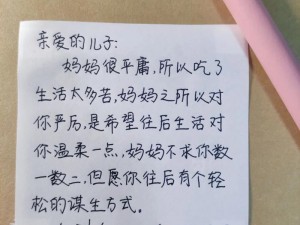 亲爱的儿子:
妈妈很平庸,所以吃了
生活太多苦,妈妈之所以对
你严厉,是希望往后生活对
你温柔一点,妈妈不求你数
一数二,但愿你往后有个轻
松的谋生方式。